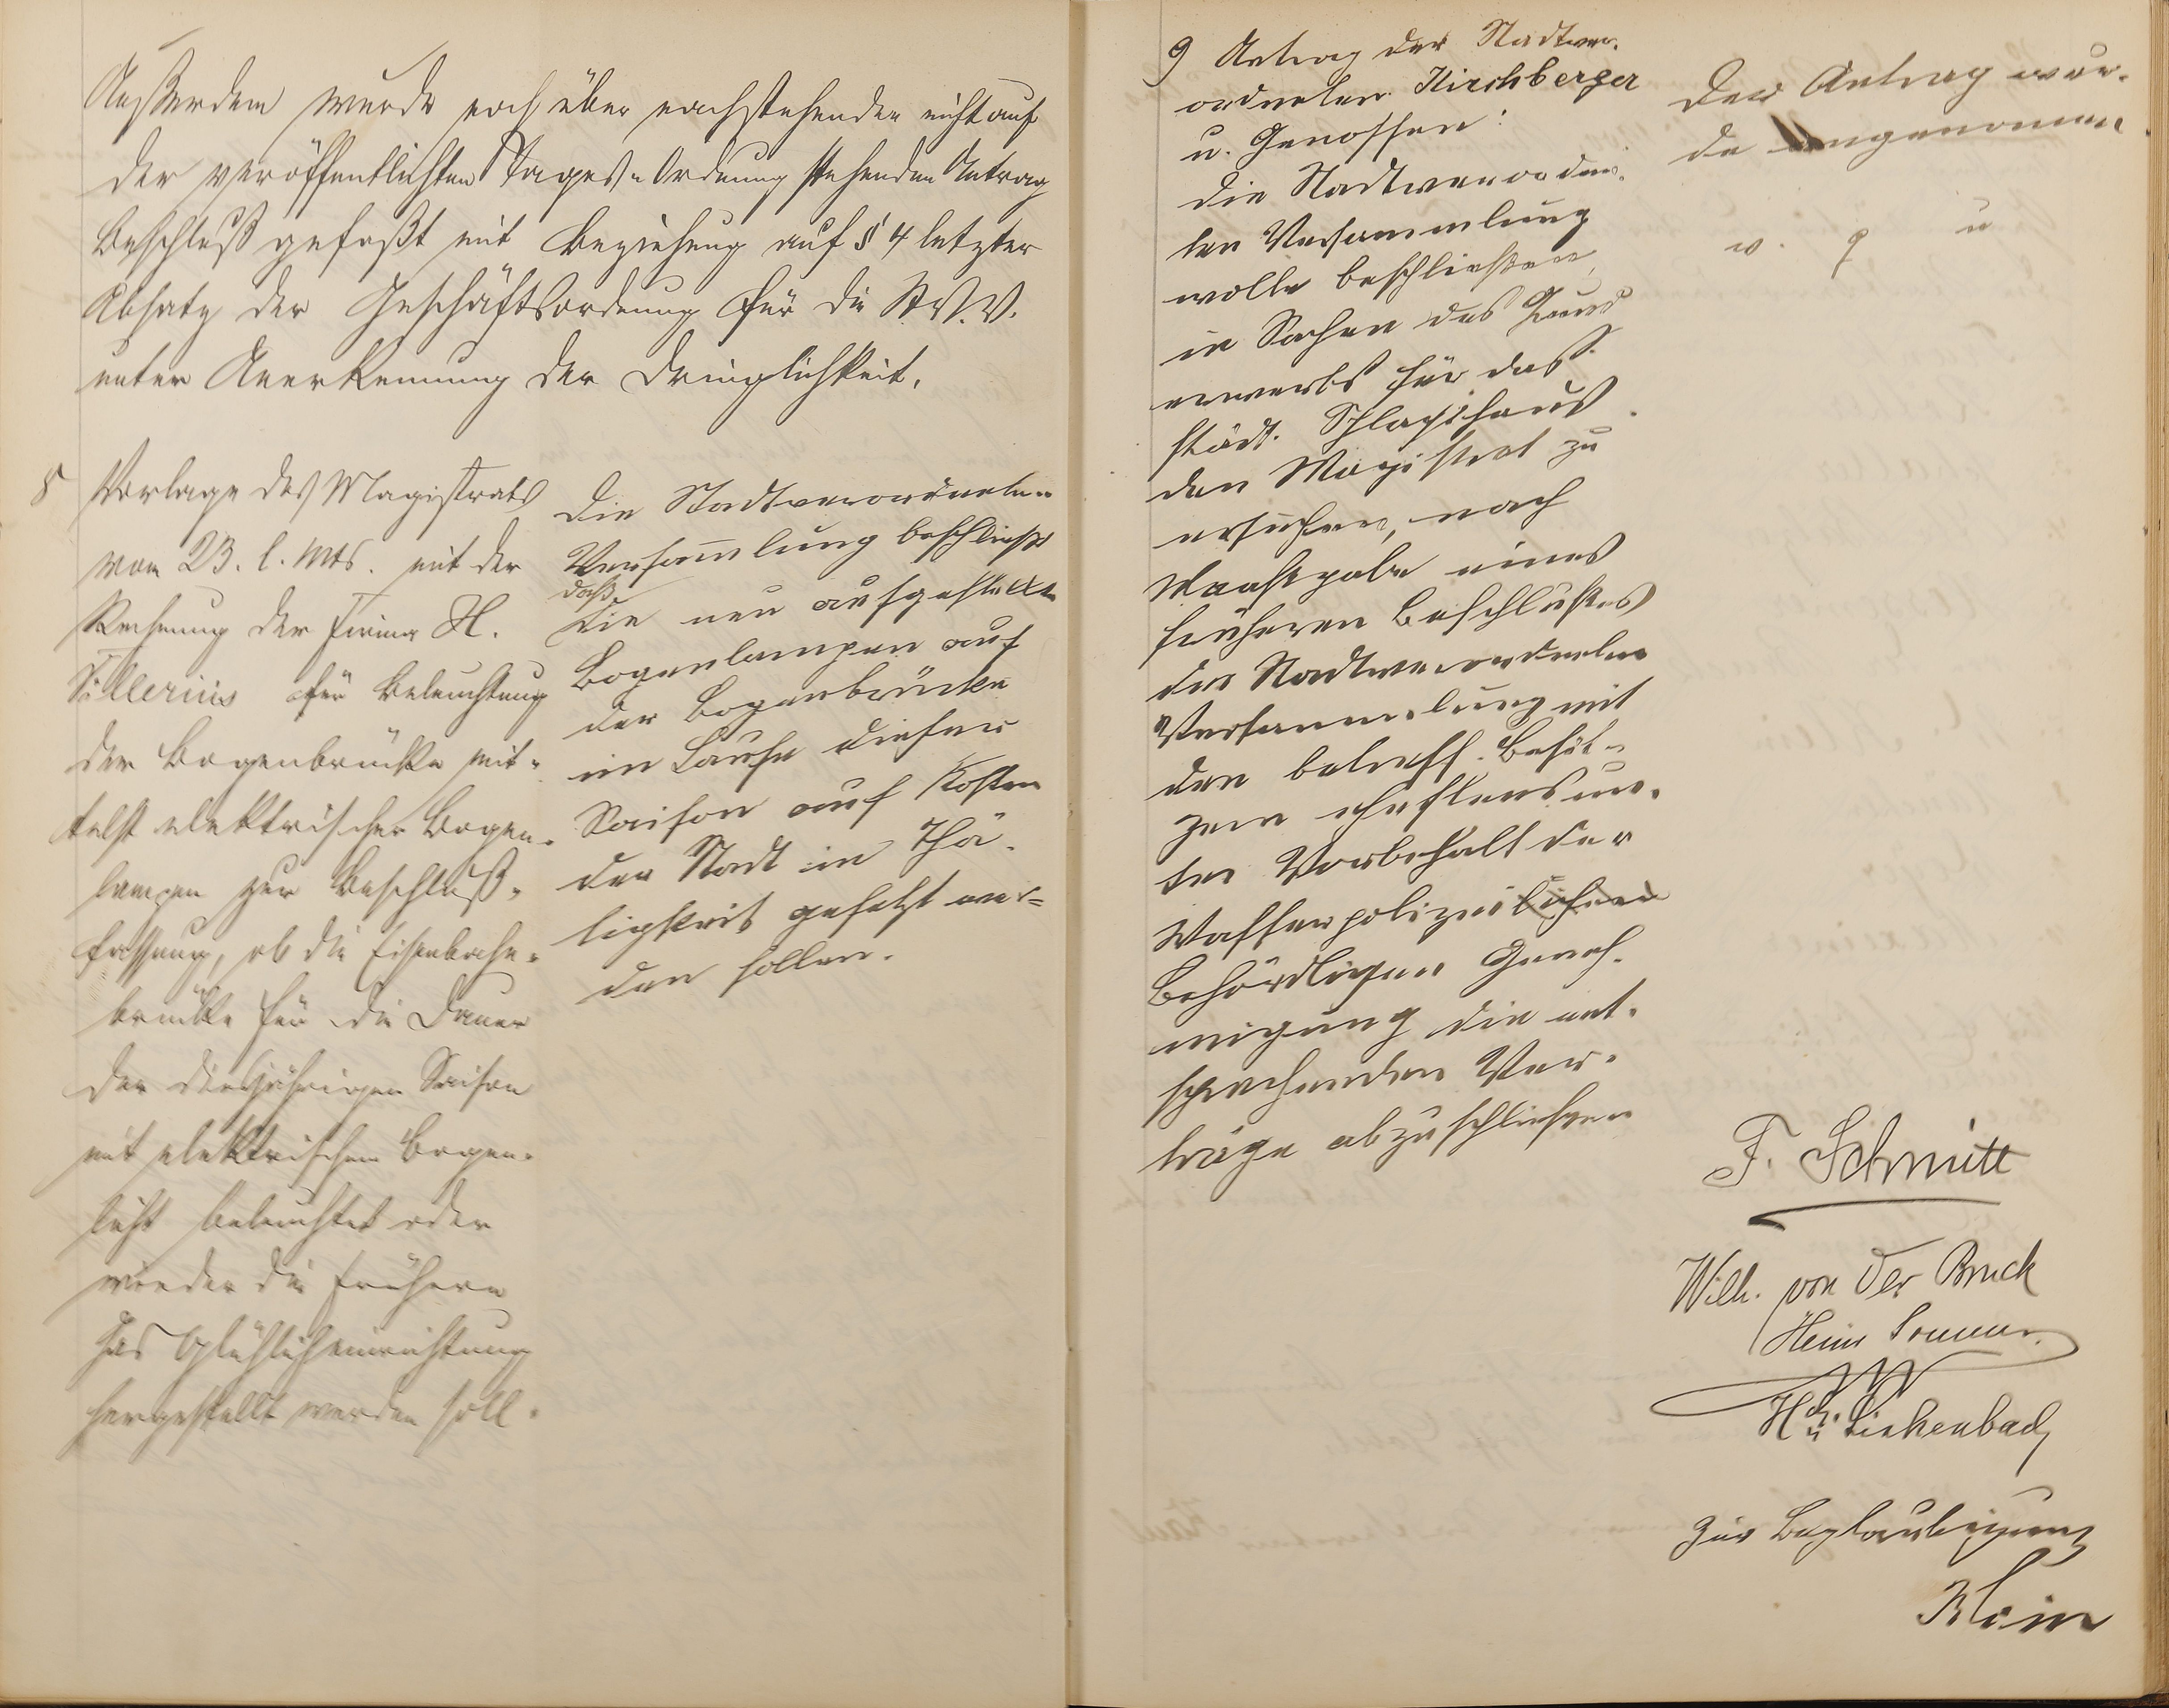 Außerdem wurde noch über nachstehenden nicht auf
der veröffentlichten Tages-Ordnung stehenden Antrag
Beschluß gefaßt mit Beziehung auf § 4 letzter
Absatz der Geschäftsordnung für die St.V.V.
unter Anerkennung der Dringlichkeit.
8 Vorlage des Magistrats
vom 23. l. Mts. mit der
Rechnung der Firma H.
für Beleuchtung
der Bogenbrücke mit-
telst elektrischer Bogen-
lampen zur Beschluß-
fassung, ob die Eisenbahn-
brücke für die Dauer
der diesjährigen Saison
mit elektrischem Bogen-
licht beleuchtet oder
wieder die frühere
Gas Glühlichteinrichtung
hergestellt werden soll.
Die Stadtverordneten
Versammlung beschließt
daß
die neu aufgestellten
Bogenlampen auf
der Bogenbrücke
im Laufe dieser
Saison auf Kosten
der Stadt in Thä-
tigkeit gesetzt wer=
den sollen.
9 Antrag der Stadtver-
ordneten Kirchberger
u. Genossen:
die Stadtverordne-
ten Versammlung
wolle beschließen,
in Sachen des Grund
erwerbs für das
städt. Schlachthaus
den Magistrat zu
ersuchen, nach
Maaßgabe eines
früheren Beschlußes
der Stadtverordneten
Versammlung mit
den betreff. Besit-
zern schleunigst un-
ter Vorbehalt der
Wasserpolizeilichen
Behördlichen Geneh-
migung die ent-
sprechenden Ver-
träge abzuschließen
Der Antrag wur-
de angenommen.
w. g. u
F. Schmitt
Wilh. von der Bruck
Heinr Sommer
Hch. Linkenbach
Zur Beglaubigung
Klein